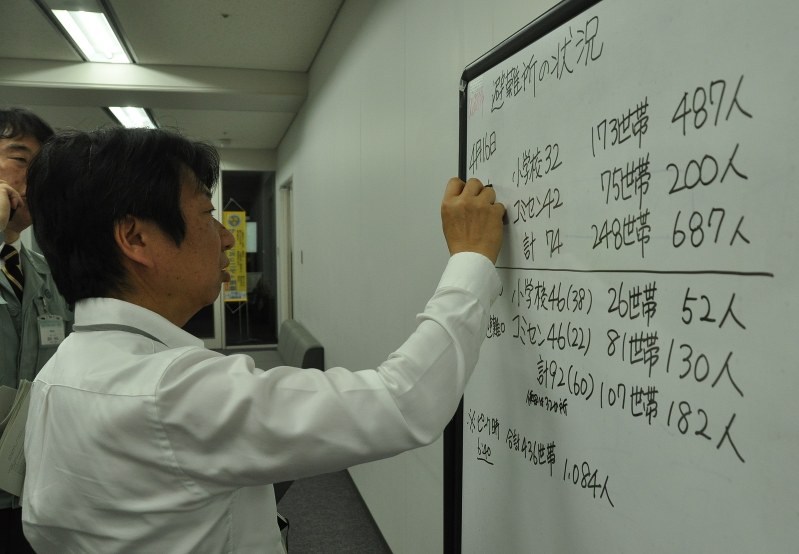 避難所の状況
4月16日
小学校32 173世帯 487人
コミセン42 75世帯 200人
計 74 248世帯 687人
小学校46(38) 26世帯 52人
コミセン46(22) 81世帯 130人
計92(60) 107世帯 182人
合計436世帯 1.084人